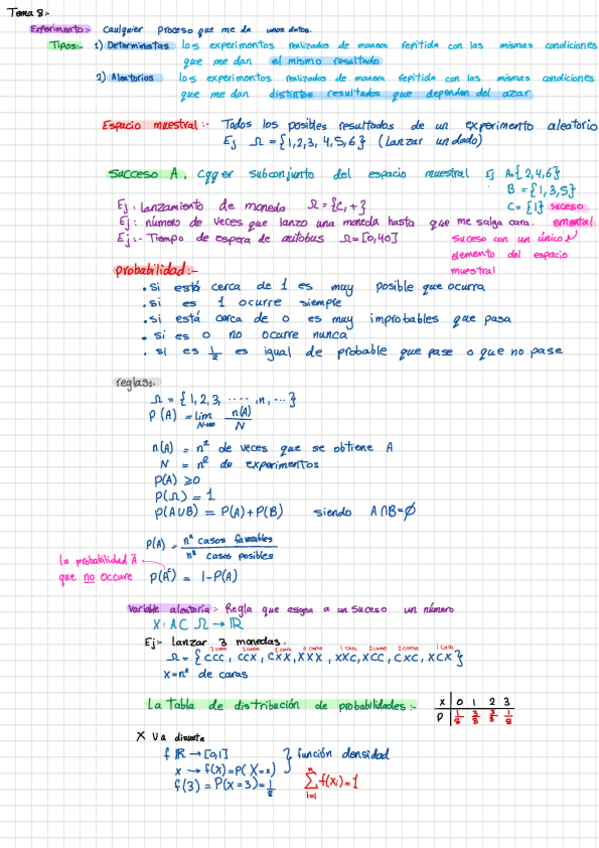 Tema 8:-
Experimento:- Cualquier proceso que me da unos datos.
Tipos:- 1) Deterministas los experimentos realizados de manera repitida con las mismas condiciones
que me dan el mismo resultado
2) Aleatorios los experimentos realizados de manera repitida con las mismas condiciones
que me dan distintos resultados que dependen del azar
Espacio muestral:- Todos los posibles resultados de un experimento aleatorio
Ej Ω = {1,2,3,4,5,6} (lanzar un dado)
Succeso A. Cqqer subconjunto del espacio muestral Ej A={2,4,6}
B = {1,3,5}
Ej: lanzamiento de moneda Ω = {C,+} C = {1} suceso
Ej: número de veces que lanzo una moneda hasta que me salga cara. emental
Ej:- Tiempo de espera de autobus Ω=[0,40] suceso con un único
elemento del espacio
muestral
probabilidad:-
• si está cerca de 1 es muy posible que ocurra
• si es 1 ocurre siempre
• si está cerca de 0 es muy improbables que pasa
• si es 0 no ocurre nunca
• si es 1/2 es igual de probable que pase o que no pase
reglas:-
Ω = {1,2,3,....,n,...}
P(A) = lim N→∞ n(A)/N
n(A) = nº de veces que se obtiene A
N = nº de experimentos
P(A) ≥0
P(Ω) = 1
P(A∪B) = P(A)+P(B) siendo A∩B=∅
P(A) = nº casos favorables / nº casos posibles
la probabilidad Ā
que no occure P(Aᶜ) = 1-P(A)
Variable aleatoria:- Regla que asigna a un suceso un número
X: A⊂Ω → ℝ
Ej:- lanzar 3 monedas.
3 caras 2 caras 1 cara 0 caras 1 cara 2 caras 2 caras 1 cara
Ω = {CCC, CCX, CXX, XXX, XXC, XCC, CXC, XCX}
X=nº de caras
La Tabla de distribución de probabilidades:-
X 0 1 2 3
P 1/8 3/8 3/8 1/8
X Va discreta
f ℝ → [0,1]
x → f(x)=P(X=x) } función densidad
f(3) = P(X=3)=1/8 ∑ⁿᵢ₌₁ f(xᵢ)=1